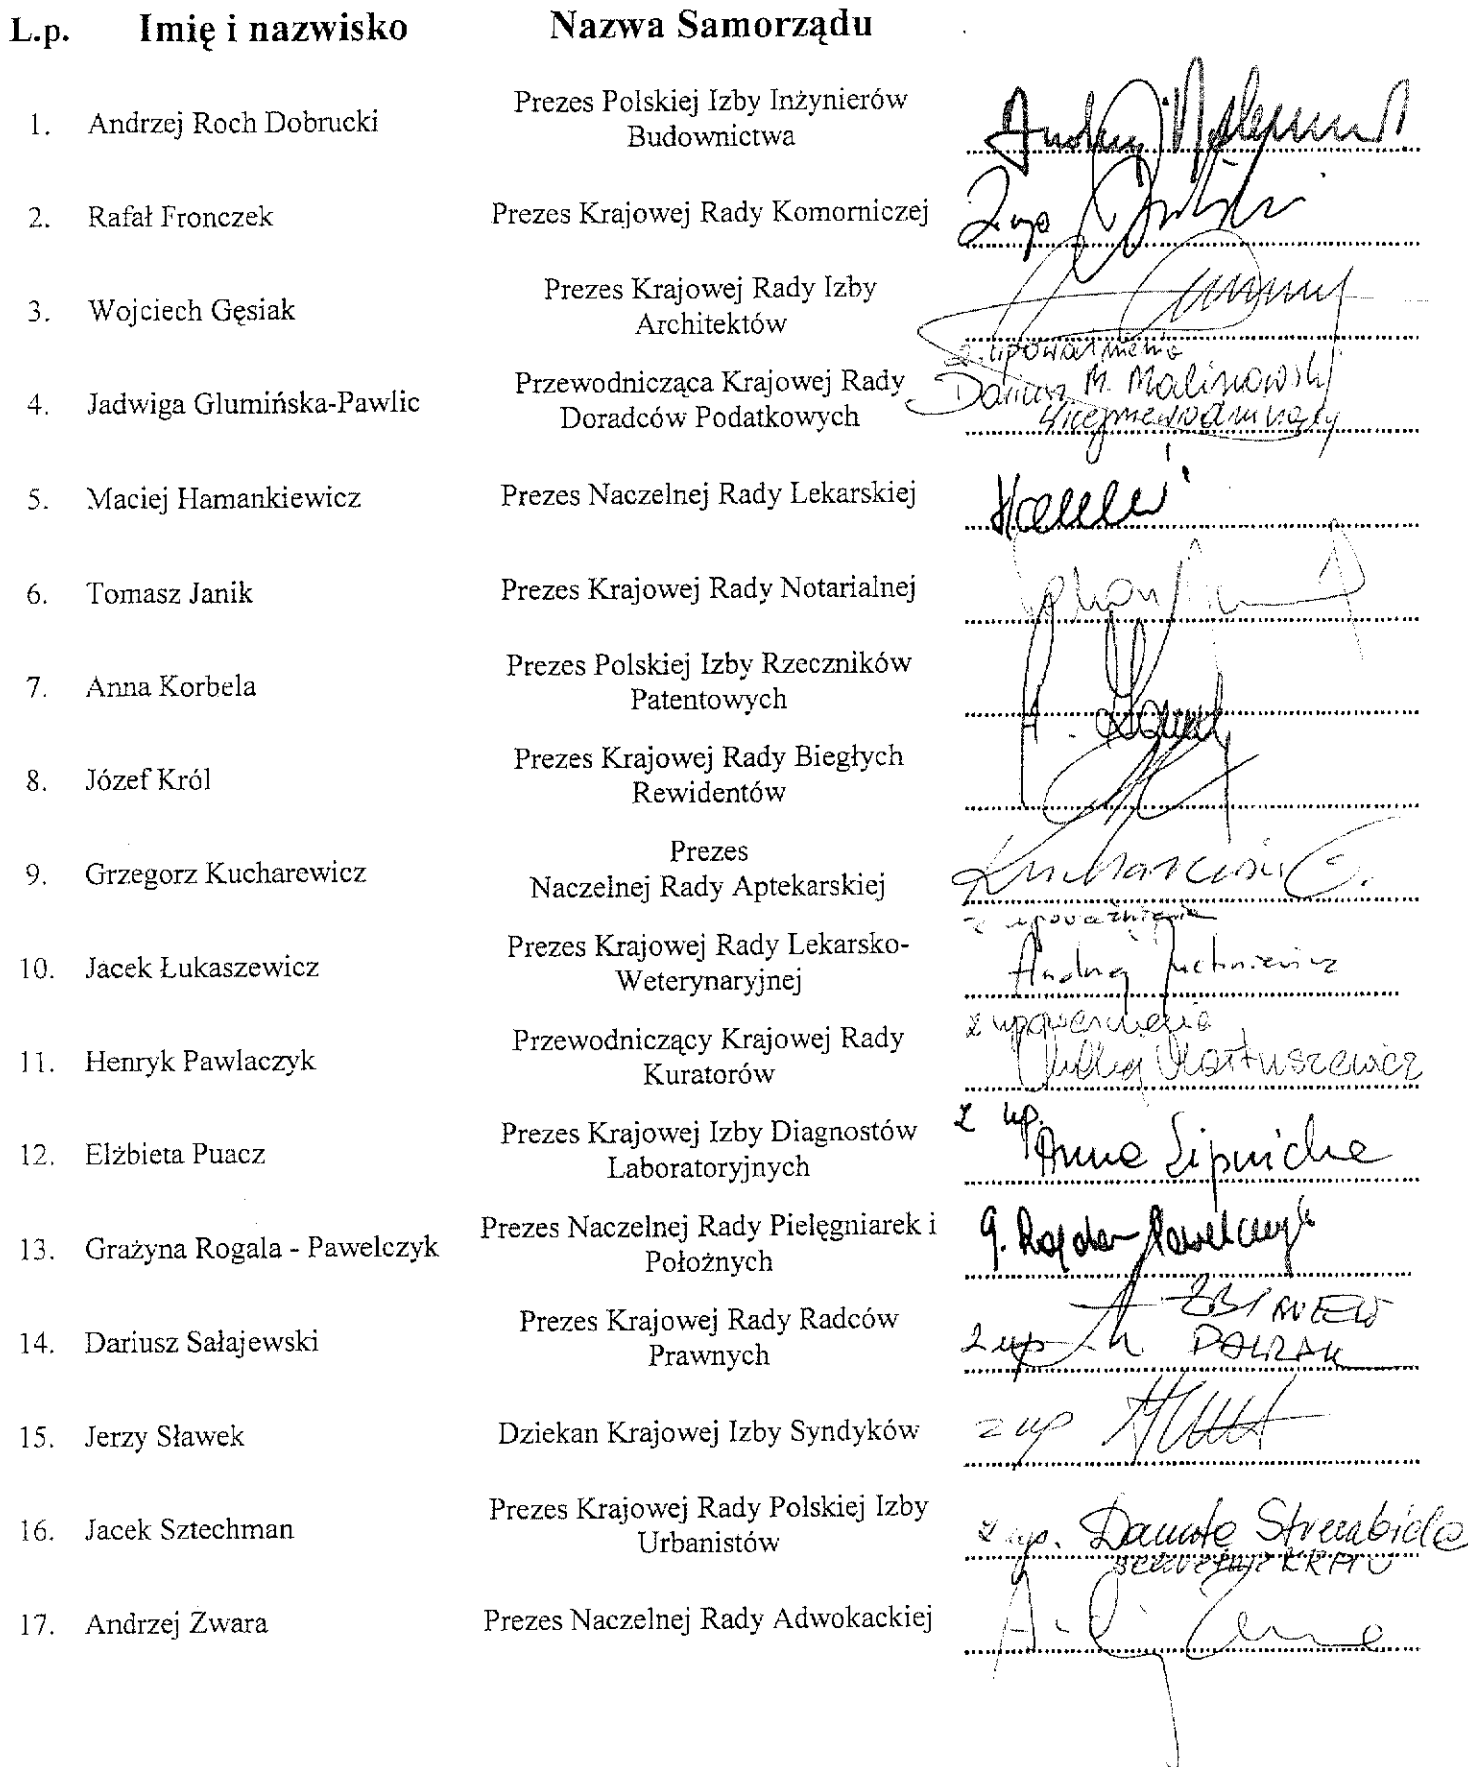 L.p. Imię i nazwisko Nazwa Samorządu
1. Andrzej Roch Dobrucki Prezes Polskiej Izby Inżynierów
Budownictwa
2. Rafał Fronczek Prezes Krajowej Rady Komorniczej
Z up.
3. Wojciech Gęsiak Prezes Krajowej Rady Izby
Architektów
z upoważnienia
4. Jadwiga Glumińska-Pawlic Przewodnicząca Krajowej Rady
Doradców Podatkowych
Dariusz M. Malinowski
Wiceprzewodniczący
5. Maciej Hamankiewicz Prezes Naczelnej Rady Lekarskiej
6. Tomasz Janik Prezes Krajowej Rady Notarialnej
7. Anna Korbela Prezes Polskiej Izby Rzeczników
Patentowych
8. Józef Król Prezes Krajowej Rady Biegłych
Rewidentów
9. Grzegorz Kucharewicz Prezes
Naczelnej Rady Aptekarskiej
Kucharewicz G.
z upoważnienia
10. Jacek Łukaszewicz Prezes Krajowej Rady Lekarsko-
Weterynaryjnej
Andrzej Juchniewicz
z upoważnienia
11. Henryk Pawlaczyk Przewodniczący Krajowej Rady
Kuratorów
Martuszewicz
12. Elżbieta Puacz Prezes Krajowej Izby Diagnostów
Laboratoryjnych
z up. Anna Lipnicka
13. Grażyna Rogala - Pawelczyk Prezes Naczelnej Rady Pielęgniarek i
Położnych
G. Rogala-Pawelczyk
14. Dariusz Sałajewski Prezes Krajowej Rady Radców
Prawnych
z up
15. Jerzy Sławek Dziekan Krajowej Izby Syndyków
z up
16. Jacek Sztechman Prezes Krajowej Rady Polskiej Izby
Urbanistów
z up. Danuta
17. Andrzej Zwara Prezes Naczelnej Rady Adwokackiej